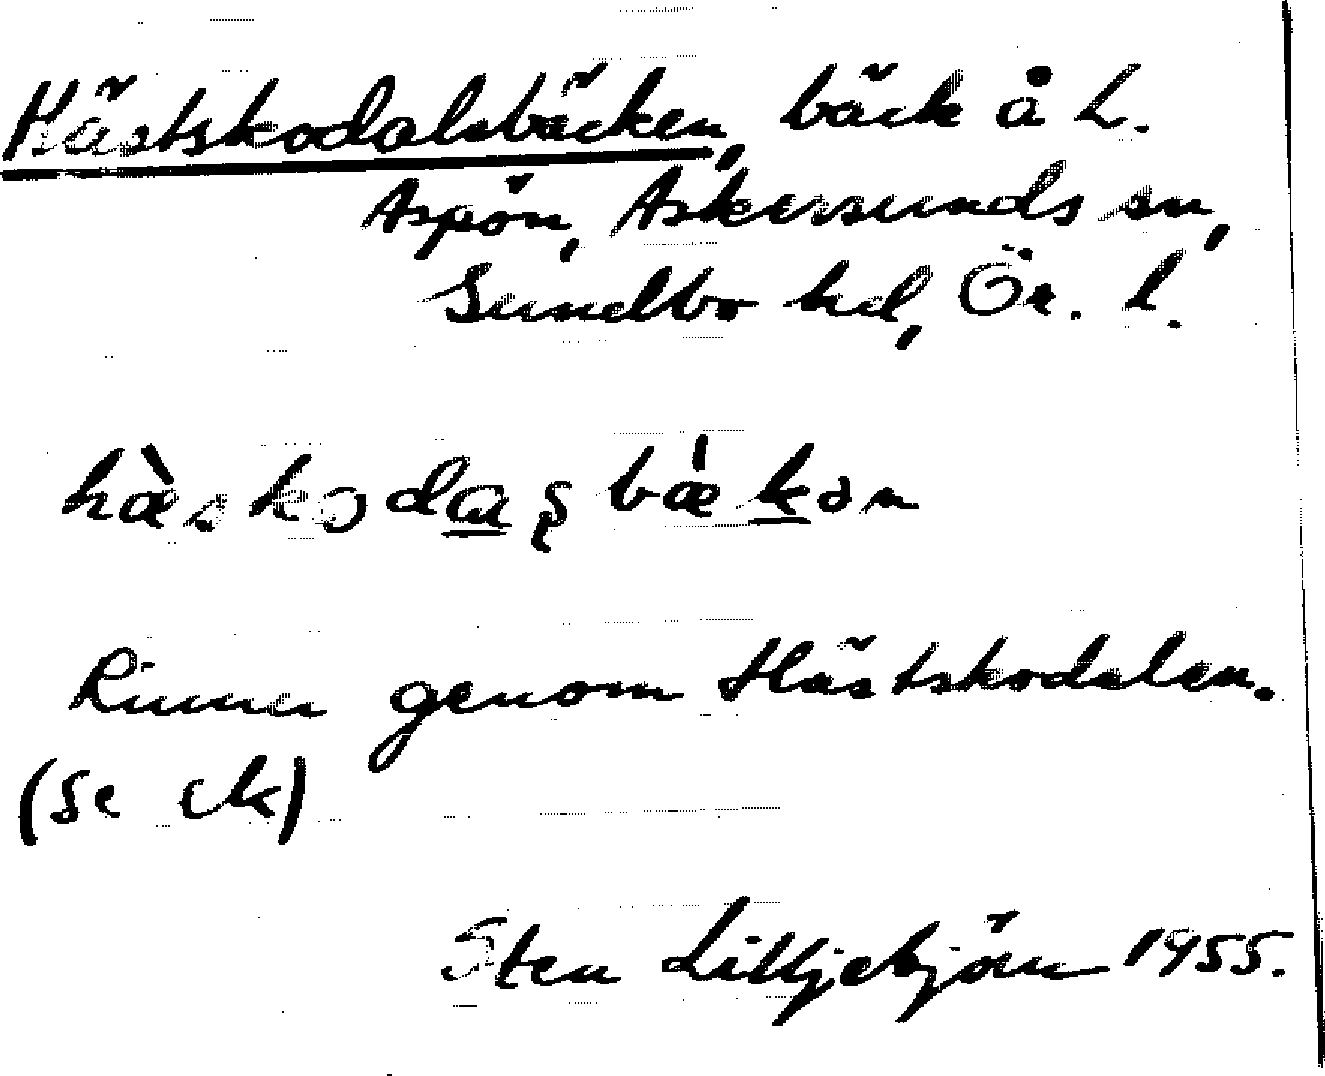 Hästskodalsbäcken, bäck å L.
Aspön, Askersunds sn,
Sundbo hd, Ör. l.
Rinner genom Hästskodalen.
(Se dk)
Sten Lilljebjörn 1955.